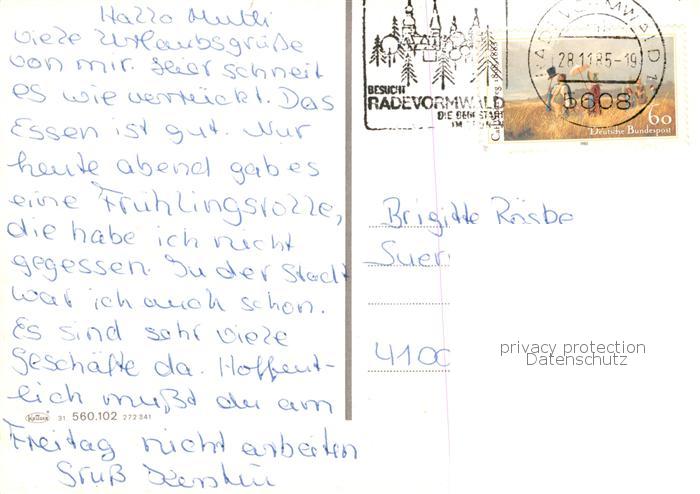 Hallo Mutti
viele Urlaubsgrüße
von mir. Hier schneit
es wie verrückt. Das
Essen ist gut. Nur
heute abend gab es
eine Frühlingsrolle,
die habe ich nicht
gegessen. In der Stadt
war ich auch schon.
Es sind sehr viele
Geschäfte da. Hoffent-
lich mußt du am
Freitag nicht arbeiten
Gruß Kerstin
31 560.102 272 341
BESUCHT
RADEVORMWALD
RADEVORMWALD 1
28.11.85-19
5608
60
Deutsche Bundespost
Brigitte
Suer
4100
privacy protection
Datenschutz